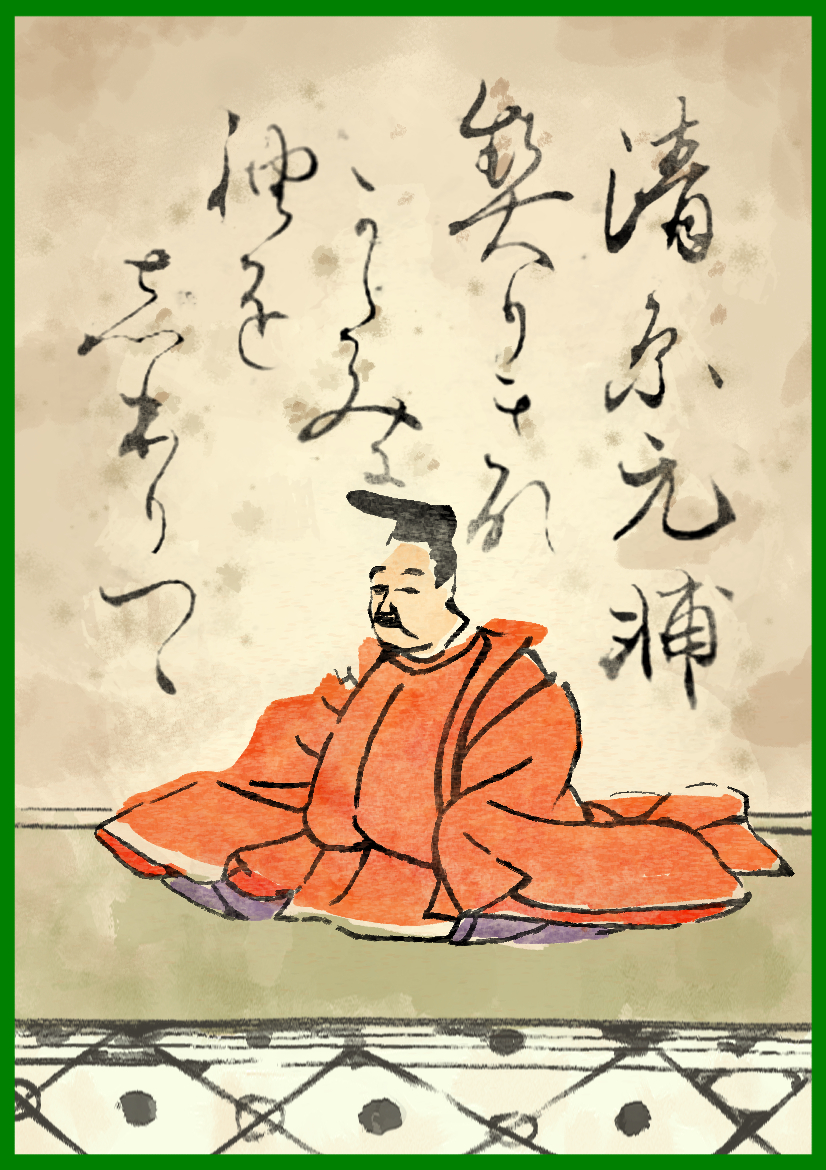 清原元輔
契りきな
かたみに
袖を
志本りつ